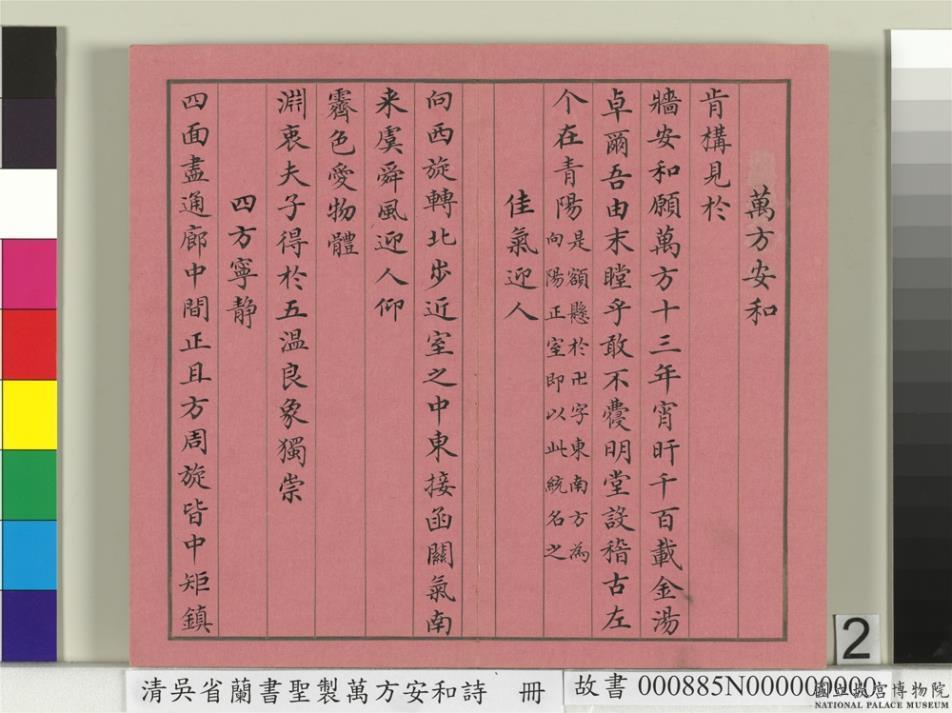 萬方安和
肯構見於
牆安和願萬方十三年宵旰千百載金湯
卓爾吾由末瞠乎敢不夔明堂設稽古左
个在青陽是額懸於卍字東南方為
向陽正室即以此統名之
佳氣迎人
向西旋轉北步近室之中東接函關氣南
来虞舜風迎人仰
霽色愛物體
淵衷夫子得於五溫良象獨崇
四方寧静
四面盡通廊中間正且方周旋皆中矩鎮
2
清吳省蘭書聖製萬方安和詩 冊
故書 000885N000000000
國立故宮博物院
NATIONAL PALACE MUSEUM